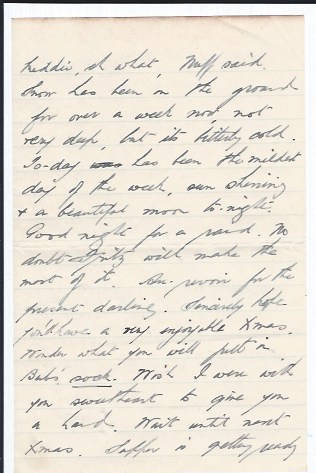 Freddie, eh what, Nuff said.
Snow has been on the ground
for over a week now, not
very deep, but its bitterly cold.
To-day was has been the mildest
day of the week, sun shining
& a beautiful moon to-night.
Good night for a raid. No
doubt Fritz will make the
most of it. Au-revoir for the
present darling. Sincerely hope
you'll have a very enjoyable Xmas.
Wonder what you will put in
Bub's sock. Wish I were with
you sweetheart to give you
a hand. Wait until next
Xmas. Supper is getting ready